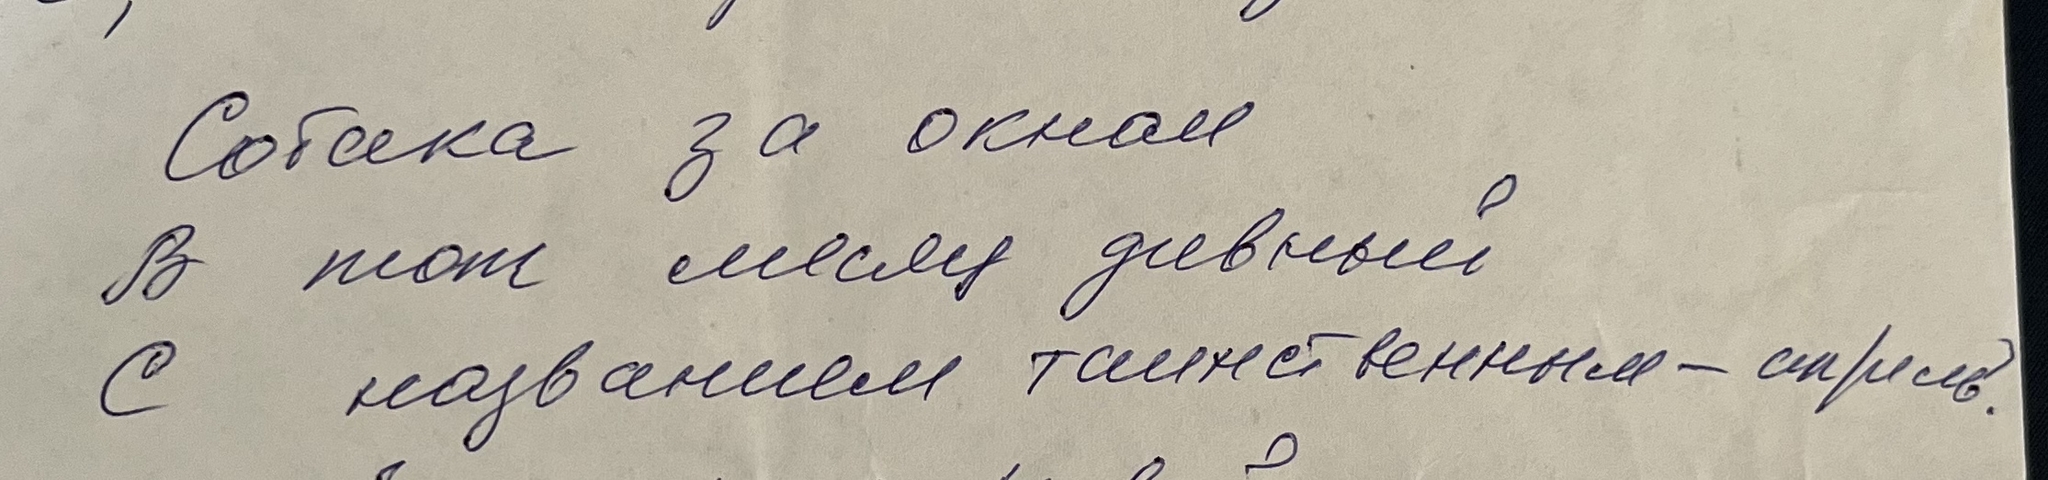 Собака за окном
В тот месяц дивный
С названием таинственным – апрель.